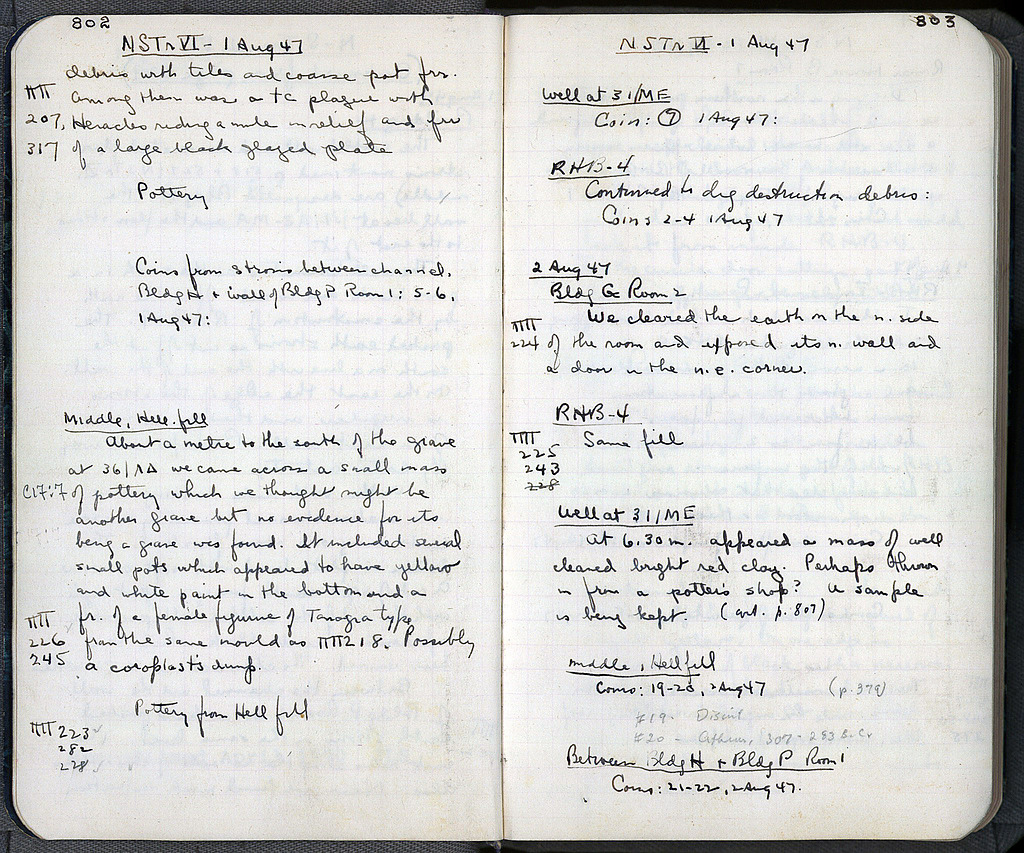 802
NSTr VI - 1 Aug 47
debris with tiles and coarse pot frr.
ΠΠ Among them was a tc plaque with
207, Heracles riding a mule in relief and frr
317 of a large black glazed plate
Pottery
Coins from stroses between channel,
Bldg H + wall of Bldg P Room 1: 5-6,
1 Aug 47:
Middle, Hell. fill
About a metre to the south of the grave
at 36/ΛΔ we came across a small mass
C17:7 of pottery which we thought might be
another grave but no evidence for its
being a grave was found. It included several
small pots which appeared to have yellow
and white paint in the bottom and a
ΠΠ fr. of a female figurine of Tanagra type
226 from the same mould as ΠΠ218. Possibly
245 a coroplast's dump.
Pottery from Hell fill
ΠΠ 223
282
228
803
NSTr VI - 1 Aug 47
Well at 31/ME
Coin: 7 1 Aug 47:
RHB-4
Continued to dig destruction debris:
Coins 2-4 1 Aug 47
2 Aug 47
Bldg G Room 2
We cleared the earth on the n. side
ΠΠ 224 of the room and exposed its n. wall and
a door in the n.e. corner.
RHB-4
ΠΠ Same fill
225
243
228
Well at 31/ME
At 6.30 m. appeared a mass of well
cleaned bright red clay. Perhaps thrown
in from a potter's shop? A sample
is being kept. (cont. p. 807)
Middle, Hell fill
Coins: 19-20, 2 Aug 47 (p. 379)
#19 - Disint
#20 - Athens, 307-283 B.C.
Between Bldg H + Bldg P Room 1
Coins: 21-22, 2 Aug 47.